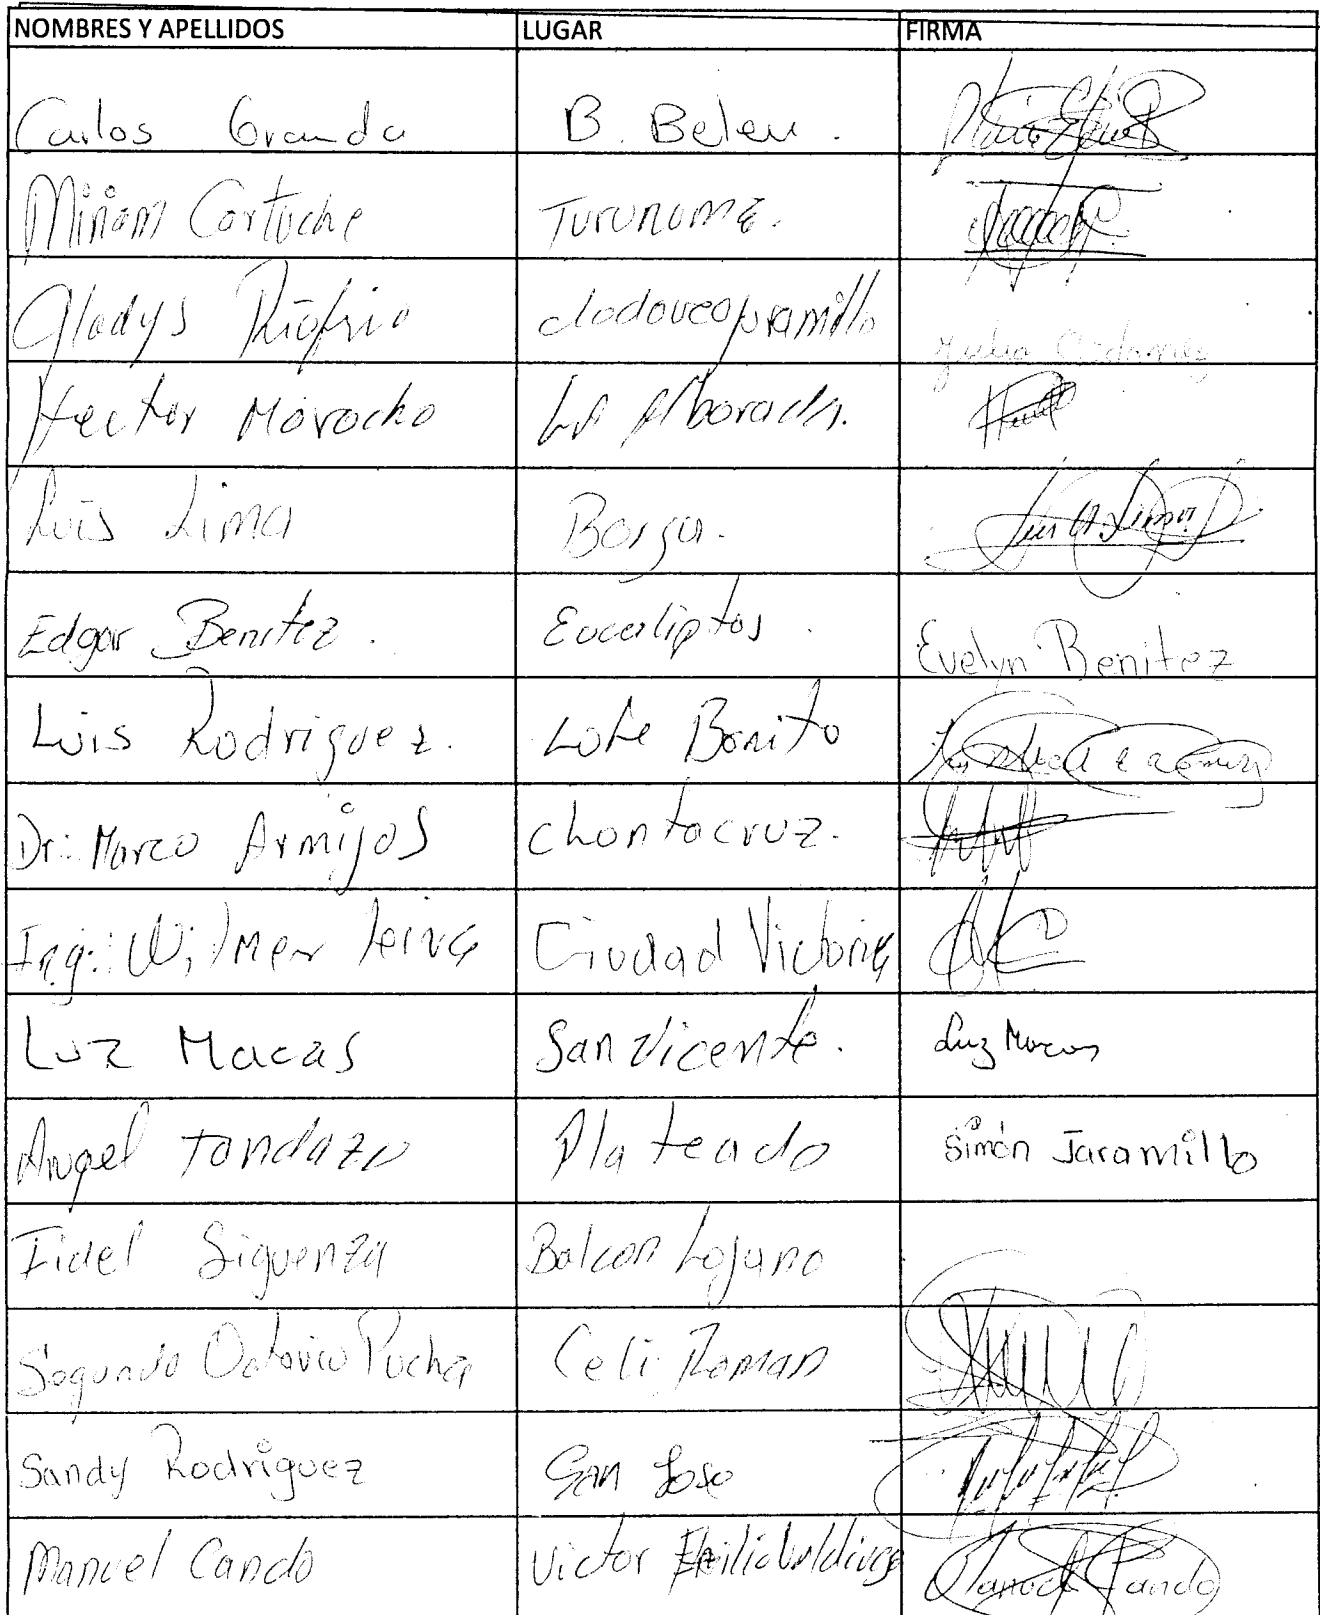 NOMBRES Y APELLIDOS LUGAR FIRMA
Carlos Granda B. Belen.
Miriam Cartuche Turunuma.
Gladys Riofrio clodoveo jaramillo
Hector Morocho La Alborada.
Luis Lima Borja. Luis A. Lima
Edgar Benitez. Eucaliptos. Evelyn Benitez
Luis Rodriguez. Lote Bonito
Dr. Marco Armijos chontacruz.
Ing. Wilmer Leiva Ciudad Victoria
Luz Macas San Vicente. Luz Macas
Angel Tandazo Plateado Simón Jaramillo
Fidel Siguenza Balcon Lojano
Segundo Octavio Pucha Celi Roman
Sandy Rodriguez San Jose
Manuel Cando Victor Emilio Valdivieso Manuel Cando